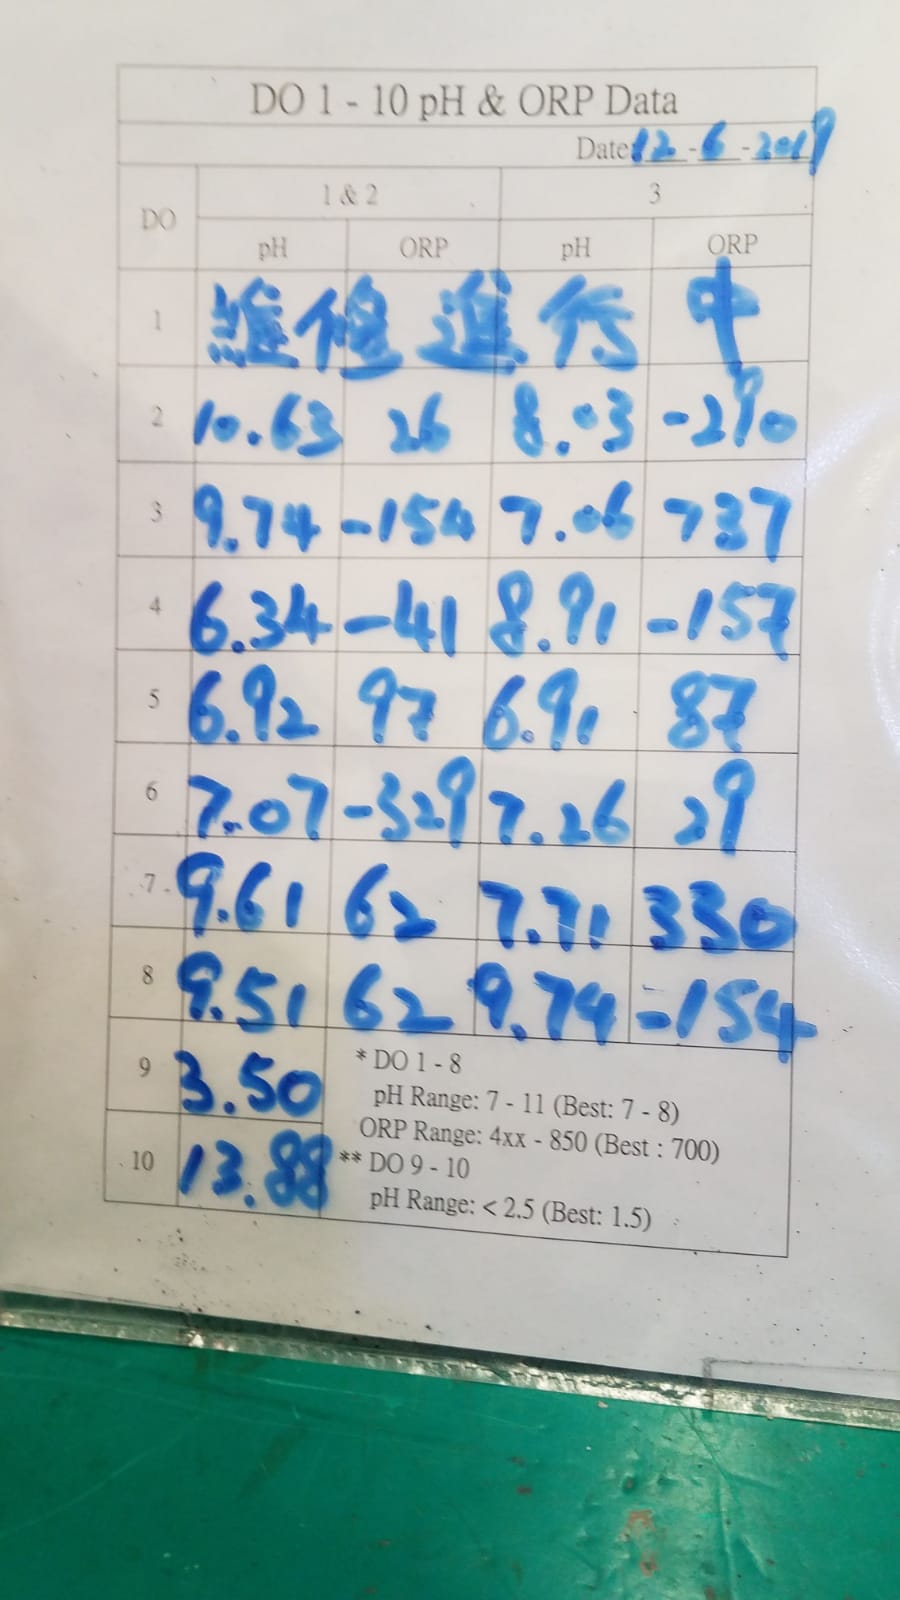 DO 1 - 10 pH & ORP Data
Date: 12 - 6 - 2019
DO 1 & 2 3
pH ORP pH ORP
1 維修進行中
2 10.63 26 8.03 -290
3 9.74 -154 7.06 737
4 6.34 -41 8.91 -157
5 6.92 97 6.91 87
6 7.07 -329 7.26 29
7 9.61 62 7.71 330
8 9.51 62 9.74 -154
9 3.50
10 13.88
* DO 1 - 8
pH Range: 7 - 11 (Best: 7 - 8)
ORP Range: 4xx - 850 (Best : 700)
** DO 9 - 10
pH Range: < 2.5 (Best: 1.5)